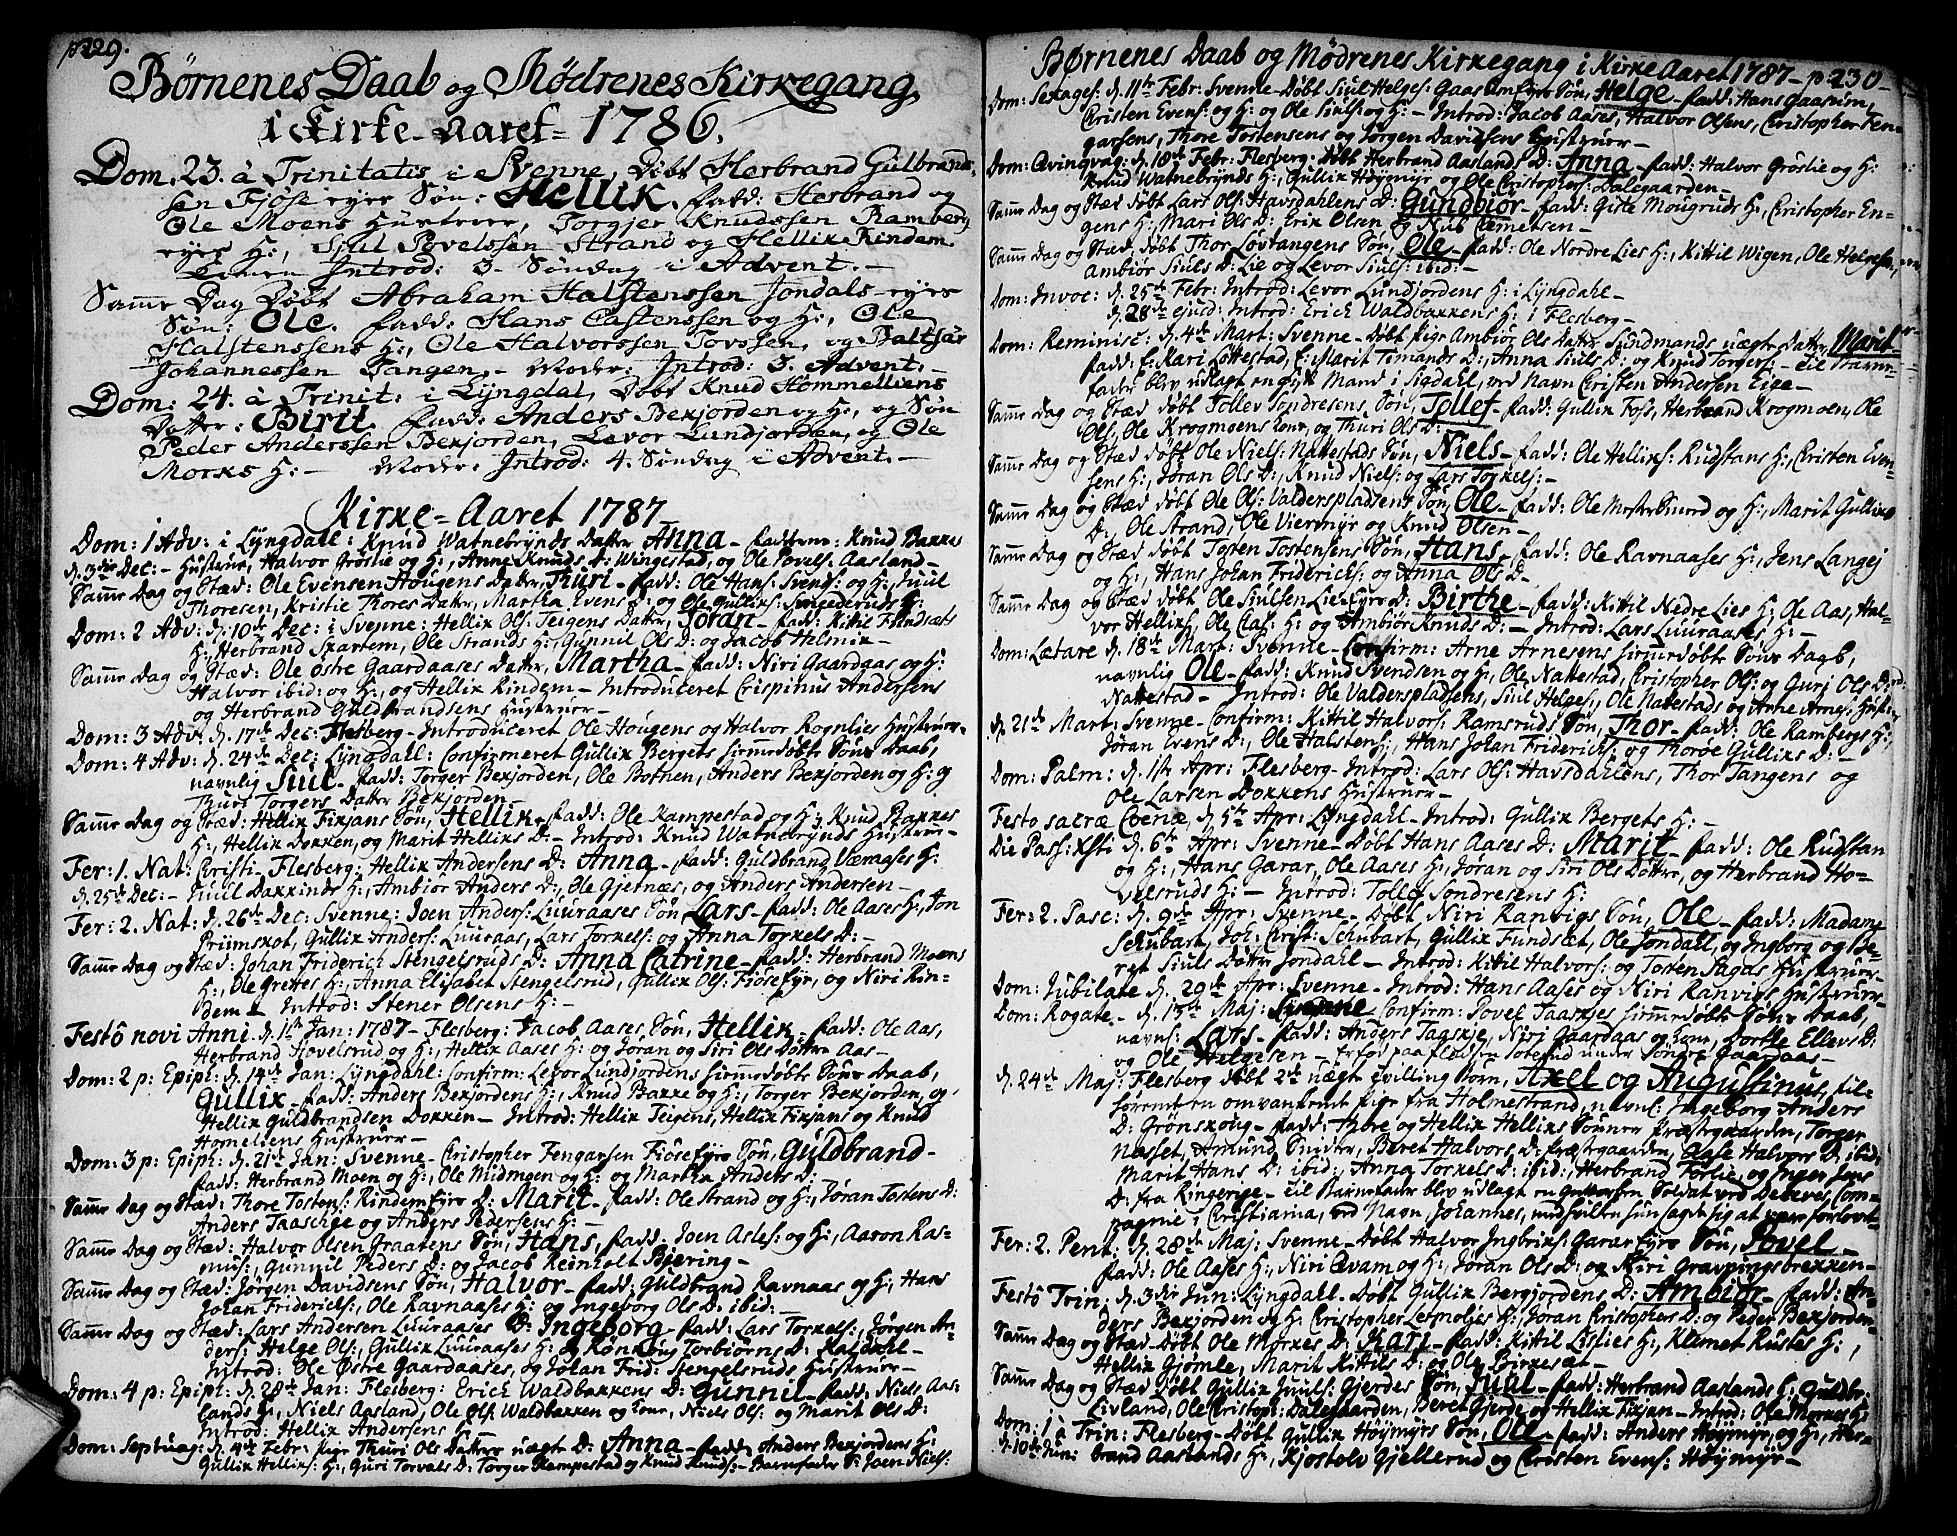 p 229.
Börnenes Daab og Mödrenes Kirkegang
i Kirke-Aaret 1786.
Dom. 23. à Trinitatis i Svenne, Döbt Herbrand Gulbrand-
sen Fjöse eyes Sön: Hellik. fadd: Herbrand og
Ole Moens Hustruer, Torgjer Knudssen Ramberg
eyes H:, Siul Povelssen Strand og Hellik Rindem
Introd: 3. Söndag i Advent.
Samme Dag Döbt Abraham Halstenssen Jondals
Sön: Ole. fadd: Hans Castenssen og H:, Ole
Halstenssens H:, Ole Halvorssen Tovssen, og Baltsar
Johannessen Tangen. Moder: Introd: 3. Advent.
Dom: 24. à Trinit: i Lyngdal, Döbt Knud Hommeliens
Datter: Birit. fadd: Anders Bexjorden og H:, og Sön
Peder Anderssen Bexjorden, Levor Lundjorden, og Ole
Morks H: Moder: Introd: 4. Söndag i Advent.
Kirke-Aaret 1787
Dom: 1 Adv: i Lyngdal: Knud Watnebrynds Datter Anna fadderne: Knud Bakkes
d. 3die Dec: Hustrue, Halvor Grøslie og H:, Anne Knuds D: Wingestad, og Ole Povels: Aasland
Samme Dag og Stæd: Ole Evensen Hougens Datter, Thuri fadd: Ole Hans: Svends: og H:, Juul
Thoresen, Kristie Thores Datter, Martha Evens D: og Ole Gulliks:
Dom: 2 Adv: d. 10de Dec: i Svenne: Hellik Ols: Teigens Datter, Joran fadd: Kittil Fundsæts
H:, Herbrand Skartem, Ole Strands H:, Gunnil Ols D: og Jacob Helmik
Samme Dag og Stæd: Ole østre Gaardaases Datter, Martha fadd: Niri Gaardaas og H:
Halvor ibid: og H:, og Hellik Rindem Introduceret Crispinus Andersens
og Herbrand Guldbrandsens Hustruer
Dom: 3 Adv: d. 17de Dec: Flesberg Introduceret Ole Hougens og Halvor Rognlies Hustruer
Dom: 4 Adv: d. 24de Dec: Lyngdahl: Confirmeret Gullik Bergets hiemmedöbte Söns Daab,
navnlig Siul fadd: Torger Bexjorden, Ole Botnen, Anders Bexjorden og H: og
Thuri Torgers Datter Bexjorden
Samme Dag og Stæd: Hellik Fixjans Søn, Hellik fadd: Ole Kampestad og H:, Knud Bakkes
H:, Hellik Dokken, og Marit Helliks D: Introd: Knud Watnebrynds Hustrue
Fer: 1. Nat: Christi Flesberg: Hellik Andersens D: Anna fadd: Guldbrand Væraases H:
d. 25de Dec: Juul H:, Ambiør Anders D:, Ole Gjernæs, og Anders Andersen
Fer: 2. Nat: d. 26de Dec: Svenne: Joen Anders: Luuraases Søn Lars fadd: Ole Aases H:, Jon
Priimskot, Gullik Anders: Luuraas, Lars Torkels: og Anna Torkels D:
Samme Dag og Stæd: Johan Friderich Stengelsruds D: Anna Catrine fadd: Herbrand Moens
H:, Ole Gretes H:, Anna Elisabet Stengelsrud, Gullik Ols: Fiøse Eyr, og Niri Rin-
dem Introd: Stener Olsens H:
Festô novi Anni d. 1ste Jan: 1787 Flesberg: Jacob Aases Søn, Hellik fadd: Ole Aas,
Herbrand Hovelsrud og H:, Hellik Aases H: og Jøran og Siri Ols Døttre Aas
Dom: 2 p: Epiph: d. 14de Jan: Lyngdahl: Confirm: Levor Lundjordens hiemmedøbte Søns Daab,
Gullik fadd: Anders Bexjordens H:, Knud Bakke og H:, Torger Bexjorden, og
Hellik Guldbrandsen Dokken Introd: Hellik Teigens, Hellik Fixjans og Knud
Homeliens Hustruer
Dom: 3 p: Epiph: d. 21de Jan: Svenne Christopher Fengarsen Fiøse Eyes Søn, Guldbrand
fadd: Herbrand Moen og H:, Ole Midmoen og H: og Martha Anders D:
Samme Dag og Stæd: Thore Tostens: Rindem Eyes D: Marit fadd: Ole Strand og H:, Jøran Tostens D:
Anders Taaschje og Anders Pedersens H:
Samme Dag og Stæd: Halvor Olsen Traatens Søn, Hans, fadd: Joen Asles: og H:, Aaron Ras-
mus:, Gunnil Peders D: og Jacob Reinholt Biering
Samme Dag og Stæd: Jørgen Davidsens Søn, Halvor fadd: Guldbrand Ravnaas og H:, Hans
Johan Friderichs:, Ole Ravnaases H: og Ingeborg Ols D: ibid:
Samme Dag og Stæd: Lars Andersen Luuraases D: Ingeborg fadd: Lars Torkels:, Jørgen An-
ders:, Helge Ols:, Gullik Luuraases H: og Rønnoug Torbiørns D: Raldahl
Introd: Ole Østre Gaardaases, og Johan Frid: Stengelsruds Hustruer
Dom: 4 p: Epiph: d. 28de Jan: Flesberg: Erich Waldbakkens D: Gunnil fadd: Niels Aas-
lands H:, Niels Aasland, Ole Ols: Waldbakken og Kone, Niels Ols: og Marit Ols D:
Introd: Hellik Andersens H:
Dom: Septuag: d. 4de Febr: Pige Thuri Ols Datters uægte D: Anna fadd: Anders Bexjordens H:
Gullik Helliks: H:, Guri Torvals D: Torger Kampestad og Knud Knuds: Barnefader S: Joen Niels:
Børnenes Daab og Mødrenes Kirkegang i Kirke Aaret 1787 p: 230
Dom: Sexages: d. 11te Febr: Svenne Døbt Siul Helges: Gaasum Eyes Søn, Helge fadd: Hans Gaasum,
Cristen Evens: og H: og Ole Siuls: og H: Introd: Jacob Aases, Halvor Olsens, Christopher Fen-
garsens, Thore Tostensens og Jørgen Davidsens Hustruer
Dom: Qvinqvag: d. 18de Febr: Flesberg: Døbt Herbrand Aaslands D: Anna fadd: Halvor Grøslie og H:
Knud Watnebrynds H:, Gullik Høymyr og Ole Christophers: Dalegaarden
Samme Dag og Stæd døbt Lars Ols: Havsdahlens D: Gundbiør fadd: Giste Mougruds H:, Christopher En-
gens H:, Mari Ols D: Erik Olsen og Klemetsen
Samme Dag og Stæd, døbt Thor Løvtangens Søn, Ole fadd: Ole Nordre Lies H:, Kittil Wigen, Ole Helgesen,
Ambiør Siuls D: Lie og Levor Siuls: ibid:
Dom: Invoc: d. 25de Febr: Introd: Levor Lundjordens H: i Lyngdahl
d. 28de ejusd: Introd: Erich Waldbakkens H: i Flesberg
Dom: Reminisc: d. 4de Mart: Svenne Døbt Pige Ambiør Ols Datter Sundmands uægte Datter, Marit
fadd: E: Kari Løttestad, E: Marit Temands D:, Anna Siuls D: og Knud Torgers: Til Barne-
fader blev udlagt en gift Mand i Sigdahl, ved Navn Cristen Andersen Eie
Samme Dag og Stæd døbt Tollev Sondresens Søn, Tollef fadd: Gullik Foss, Herbrand Krogmoen, Ole
Ols:, Ole Krogmoens Kone, og Thuri Ols D:
Samme Dag og Stæd døbt Ole Niels: Nattestads Søn, Niels fadd: Ole Helliks: Rudstans H:, Cristen Even-
sens H:, Jøran Ols D:, Knud Niels: og Lars Torkels:
Samme Dag og Stæd døbt Ole Ols: Valderspladsens Søn, Ole fadd: Ole og H:, Marit Gulliks
D:, Ole Strand, Ole Viermyr og Knud Olsen
Samme Dag og Stæd døbt Tosten Tostensens Søn, Hans fadd: Ole Ravnaases H:, Jens Langej
og H:, Hans Johan Fridericks: og Anna Ols D:
Samme Dag og Stæd døbt Ole Siulsen Lie Eyes D: Birthe fadd: Kittil Nedre Lies H:, Ole Aas, Hal-
vor Helliks:, Ole Clas: H: og Ambiør Knuds D: Introd: Lars Luuraases H:
Dom: Lætare d. 18de Mart: Svenne Confirm: Arne Arnesens hiemmedøbte Søns Daab,
navnlig Ole fadd: Knud Svendsen og H:, Ole Nattestad, Christopher Ols: og Guri Ols D:
Nattestad Introd: Ole Valderspladsens, Siul Helges:, Ole Nattestads og Arne Arnes: Hustr:
d. 21de Mart: Svenne Confirm: Kittil Halvors: Ramsruds Søn, Thor fadd: Ole Rambergs H:,
Jøran Evens D:, Ole Halstens:, Hans Johan Friderichs: og Thorøe Gulliks D:
Dom: Palm: d. 1ste Apr: Flesberg Introd: Lars Ols: Havsdahlens, Thor Tangens og
Ole Larsen Dokkens Hustruer
Festo sacræ Coenæ, d. 5te Apr: Lyngdahl Introd: Gullik Bergets H:
Die Pass: Xsti d. 6te Apr: Svenne Døbt Hans Aases D: Marit fadd: Ole Rudstan
og H:, Hans Garar, Ole Aases H:, Jøran og Siri Ols Døttre, og Herbrand Ho-
velsruds H: Introd: Tollef Sondresens H:
Fer: 2. Pasc: d. 9de Apr: Svenne Døbt Niri Ranvigs Søn, Ole fadd: Madame
Schubart, Joh: Christ: Schubart, Gullik Fundsæt, Ole Jondall, og Ingborg og Be-
ret Siuls Døtre Jondahl Introd: Kittil Halvors: og Tosten Sagas Hustruer
Dom: Jubilate d. 29de Apr: Svenne Introd: Hans Aases og Niri Ranvigs Hustruer
Dom: Rogate d. 13de Maj: Svenne Confirm: Povel Taaskjes hiemmedøbte Søns Daab,
navnl: Lars fadd: Anders Taaskje, Niri Gaardaas og Kone, Dorthe Ellevs D:
og Ole Helgesen under Søndre Gaardaas
d. 24de Maj: Flesberg døbt 2de uægte Tvilling Børn, Axel og Augustinus, til-
hørende en omvankende Pige fra Holmestrand, navnl: Ingeborg Anders
D: Grønskoug fadd: Thore og Hellik Helliks Sønner Præstegaarden, Torger
Nasset, Amund Snidker, Beret Halvors D: Præstgaarden, Aase Halvors D: ibid:
Marit Hans D: ibid:, Anna Torkels D: ibid: HerbrandFørlie, og Inger Jens
D: fra Ringerige Til Barnefader blev udlagt en Soldat ved Compagnie
i Christiania, ved Navn, Johannes, med hvilken hun sagde sig at være forlovet
Fer: 2. Pent: d. 28de Maj: Svenne Døbt Halvor Ingbriks: Garar Eyes Søn, Povel
fadd: Ole Aases H:, Niri Qvam og H:, Jøran Ols D: og Kiri Gravningsbrekken
Festô Trin: d. 3die Jun: Lyngdahl Døbt Gullik Bergjordens D: Ambiør fadd: An-
ders Bexjorden og H:, Christopher Lesmoljes H:, Jøran Christophers D: og Peder Bexjorden
Samme Dag og Stæd Døbt Ole Morkes D: Kari fadd: Kittil Lislies H:, Klemet Rustes H:,
Hellik Gjømle, Marit Kittils D: og Ole Birkesæt
Samme Dag og Stæd Døbt Gullik Juuls: Gjerdes Søn, Juul fadd: Herbrand Aaslands H:, Guldbr:
Evland, Ole Christoph: Dalegaarden, Beret Gjerde og Hellik Fixjan Introd: Ole Morkes H:
Dom: 1 à Trin: Flesberg Døbt Gullik Høymyrs Søn, Ole fadd: Anders Høymyr, og H:, Her-
d. 10de Jun: brand Aaslands H:, Kjostolv Gjellerud og Christen Evens: Høymyr